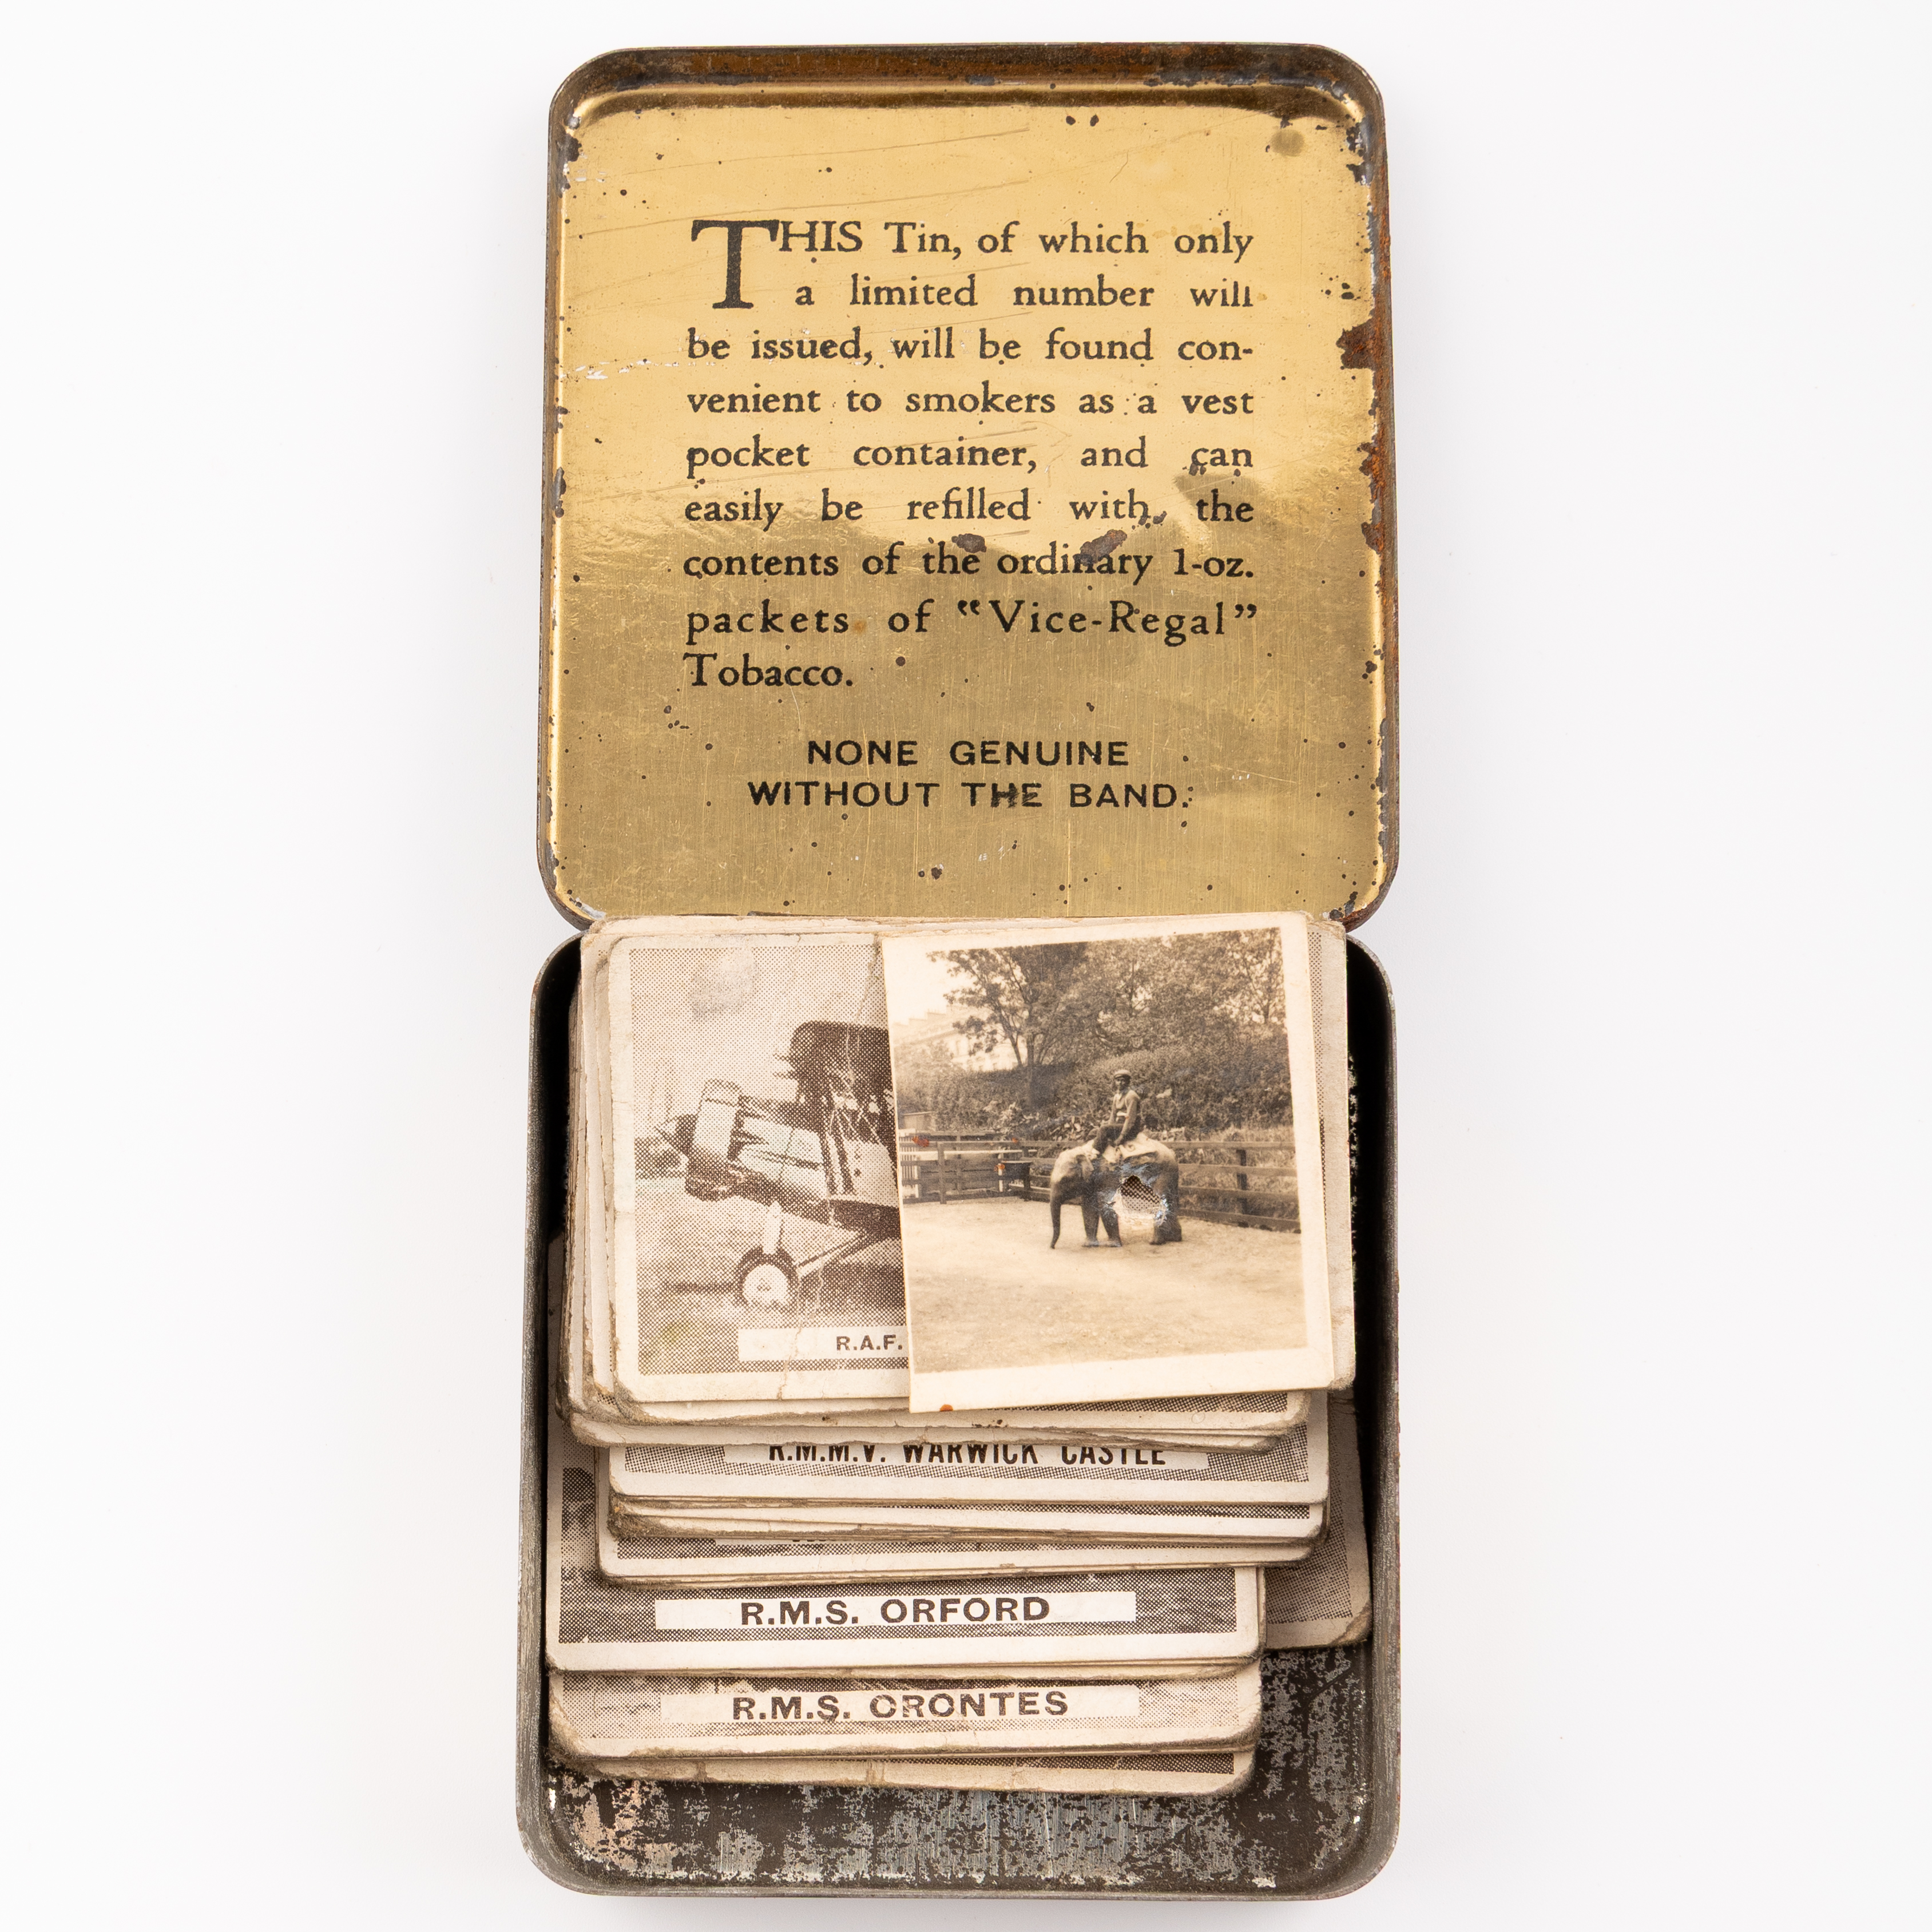 THIS Tin, of which only
a limited number will
be issued, will be found con-
venient to smokers as a vest
pocket container, and can
easily be refilled with the
contents of the ordinary 1-oz.
packets of “Vice-Regal”
Tobacco.
NONE GENUINE
WITHOUT THE BAND.
R.A.F.
R.M.M.V. WARWICK CASTLE
R.M.S. ORFORD
R.M.S. ORONTES